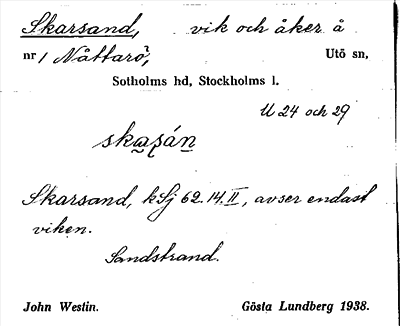 Skarsand, vik och åker å
nr 1 Nåttarö, Utö sn,
Sotholms hd, Stockholms l.
U 24 och 29
Skarsand, kSj 62.14.II, avser endast
viken.
Sandstrand.
John Westin. Gösta Lundberg 1938.